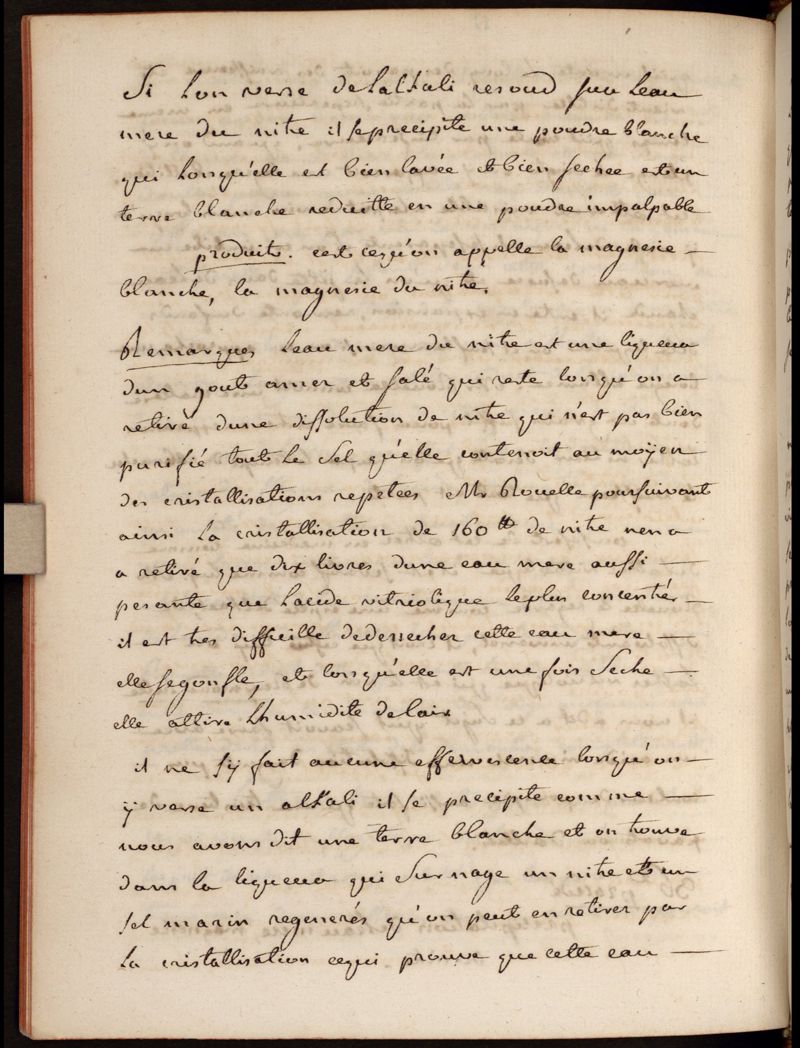 Si Lon verse de Lalkali resoud sur Leau
mere du nitre il se precipite une poudre blanche
qui Lorsqu'elle est bien lavée et bien sechee est un
terre blanche reduitte en une poudre impalpable
produit. cest cequ'on appelle la magnesie —
blanche, la magnesie du nitre.
Remarques Leau mere du nitre est une liqueur
dun gout amer et salé qui reste lorsqu'on a
retiré dune dissolution de nitre qui n'est pas bien
purifié tout Le Sel qu'elle contenoit au moyen
des cristallisations repetees Mr Rouelle poursuivant
ainsi La cristallisation de 160 tt de nitre nen a
a retiré que dix livres dune eau mere aussi —
pesante que Lacide vitriolique Leplus concentré —
il est tres difficille dedessecher cette eau mere —
elle segonfle, et lorsqu'elle est une fois Seche —
elle attire Lhumidite delair
il ne s'y fait aucune effervescence lorsqu'on —
y verse un alkali il se precipite comme —
nous avons dit une terre blanche et on trouve
dans la liqueur qui Surnage un nitre et un
sel marin regenerés qu'on peut en retirer par
La cristallisation cequi prouve que cette eau —